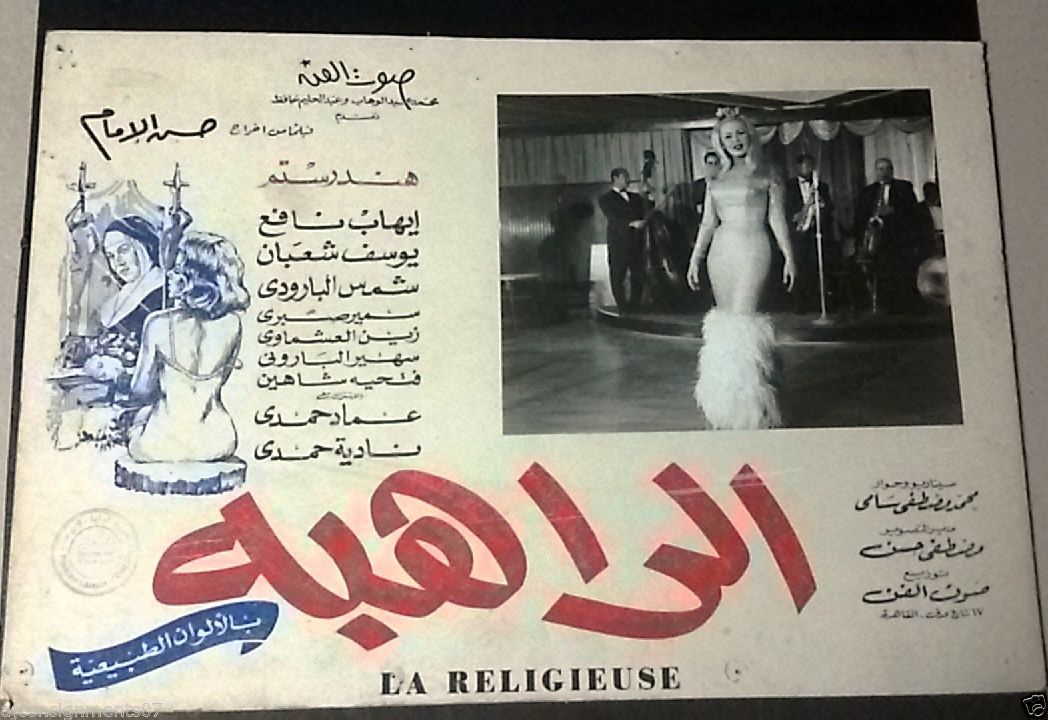 صوت الفن
محمد عبدالوهاب وعبدالحليم حافظ
تقدم
فيلما من اخراج حسن الإمام
هند رستم
إيهاب نافع
يوسف شعبان
شمس البارودى
سمير صبرى
زين العشماوى
سهير البارونى
فتحيه شاهين
عماد حمدى
نادية حمدى
سيناريو وحوار
محمد مصطفى سامى
مدير التصوير
مصطفى حسن
توزيع
صوت الفن
الراهبه
بالألوان الطبيعية
LA RELIGIEUSE
a_consignments87